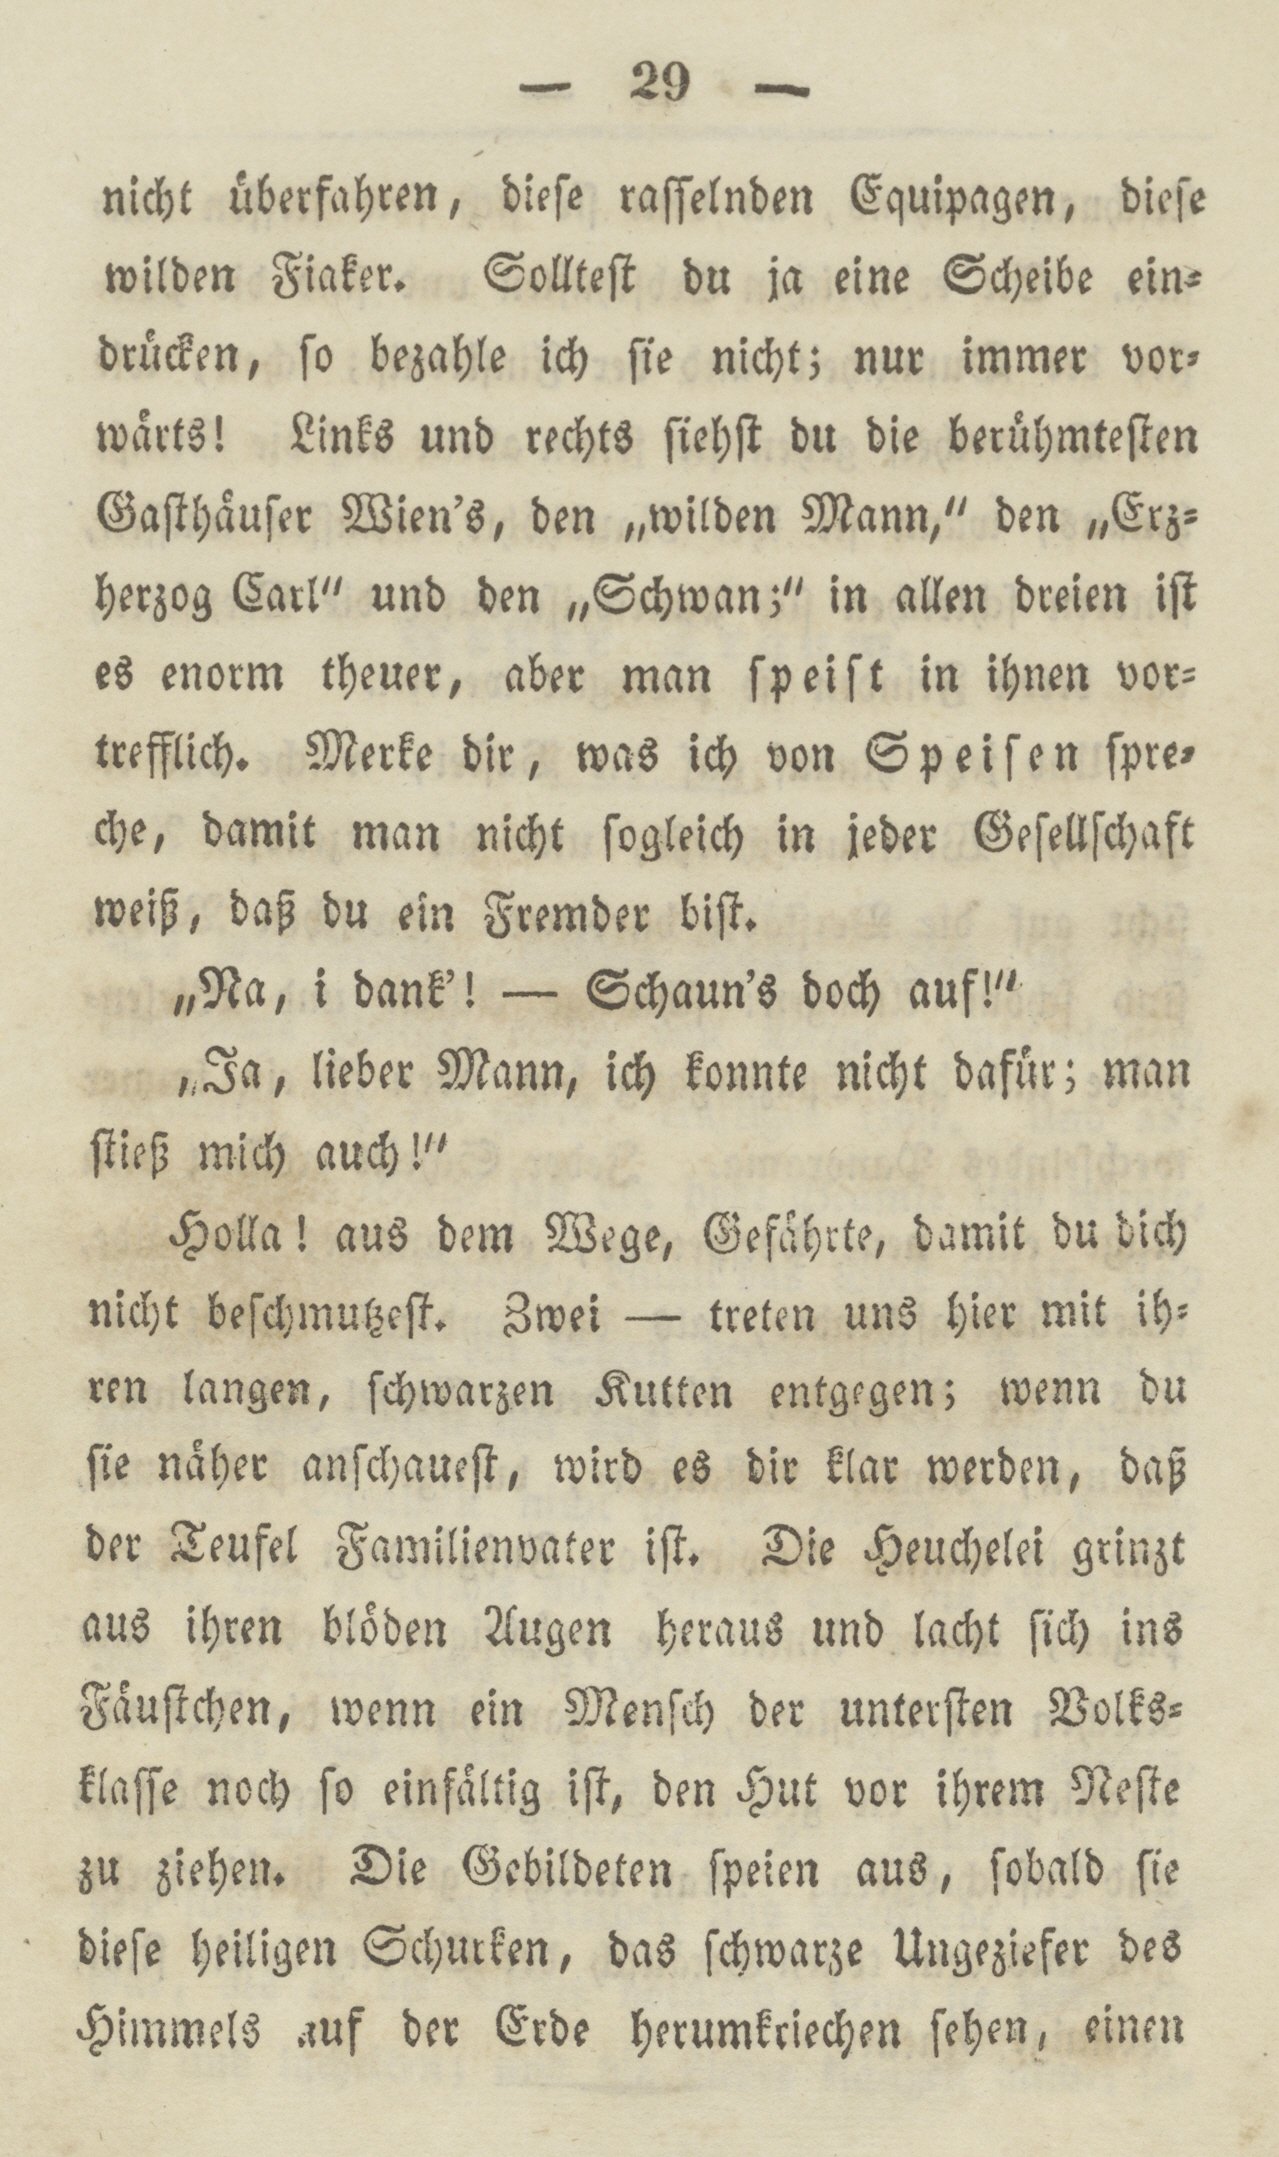 — 29 —
nicht überfahren, diese rasselnden Equipagen, diese
wilden Fiaker. Solltest du ja eine Scheibe ein-
drücken, so bezahle ich sie nicht; nur immer vor-
wärts! Links und rechts siehst du die berühmtesten
Gasthäuser Wien's, den „wilden Mann,“ den „Erz-
herzog Carl“ und den „Schwan;“ in allen dreien ist
es enorm theuer, aber man speist in ihnen vor-
trefflich. Merke dir, was ich von Speisen spre-
che, damit man nicht sogleich in jeder Gesellschaft
weiß, daß du ein Fremder bist.
„Na, i dank'! — Schaun's doch auf!“
„Ja, lieber Mann, ich konnte nicht dafür; man
stieß mich auch!“
Holla! aus dem Wege, Gefährte, damit du dich
nicht beschmutzest. Zwei — treten uns hier mit ih-
ren langen, schwarzen Kutten entgegen; wenn du
sie näher anschauest, wird es dir klar werden, daß
der Teufel Familienvater ist. Die Heuchelei grinzt
aus ihren blöden Augen heraus und lacht sich ins
Fäustchen, wenn ein Mensch der untersten Volks-
klasse noch so einfältig ist, den Hut vor ihrem Neste
zu ziehen. Die Gebildeten speien aus, sobald sie
diese heiligen Schurken, das schwarze Ungeziefer des
Himmels auf der Erde herumkriechen sehen, einen